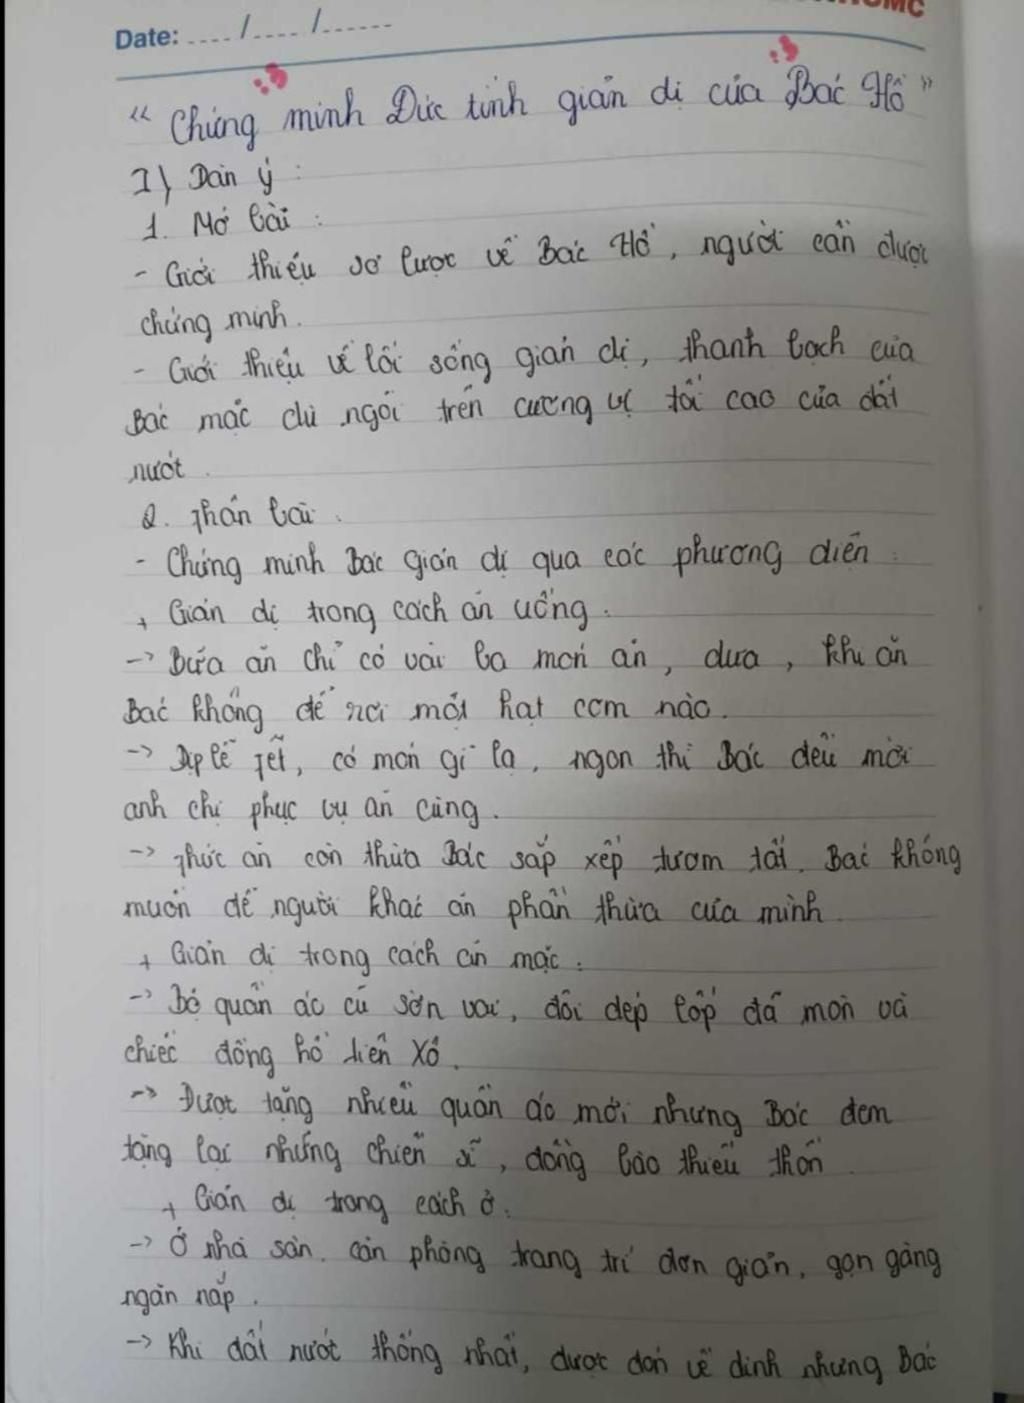 Date: ..../..../......
"Chứng minh Đức tính giản dị của Bác Hồ"
I) Dàn ý :
1. Mở bài :
- Giới thiệu sơ lược về Bác Hồ, người cần được
chứng minh.
- Giới thiệu về lối sống giản dị, thanh bạch của
Bác mặc dù ngồi trên cương vị tối cao của đất
nướt.
2. Thân bài :
- Chứng minh Bác giản dị qua các phương diện :
+ Giản dị trong cách ăn uống.
-> Bữa ăn chỉ có vài ba món ăn, dưa, khi ăn
Bác không để rơi một hạt cơm nào.
-> Dịp lễ Tết, có món gì lạ, ngon thì Bác đều mời
anh chị phục vụ ăn cùng.
-> Thức ăn còn thừa Bác sắp xếp tươm tất. Bác không
muốn để người khác ăn phần thừa của mình.
+ Giản dị trong cách ăn mặc :
-> Bộ quần áo cũ sờn vai, đôi dép lốp đã mòn và
chiếc đồng hồ Liên Xô.
-> Được tặng nhiều quần áo mới nhưng Bác đem
tặng lại những chiến sĩ, đồng bào thiếu thốn.
+ Giản dị trong cách ở.
-> Ở nhà sàn. căn phòng trang trí đơn giản, gọn gàng
ngăn nắp.
-> Khi đất nướt thống nhất, được đón về dinh nhưng Bác